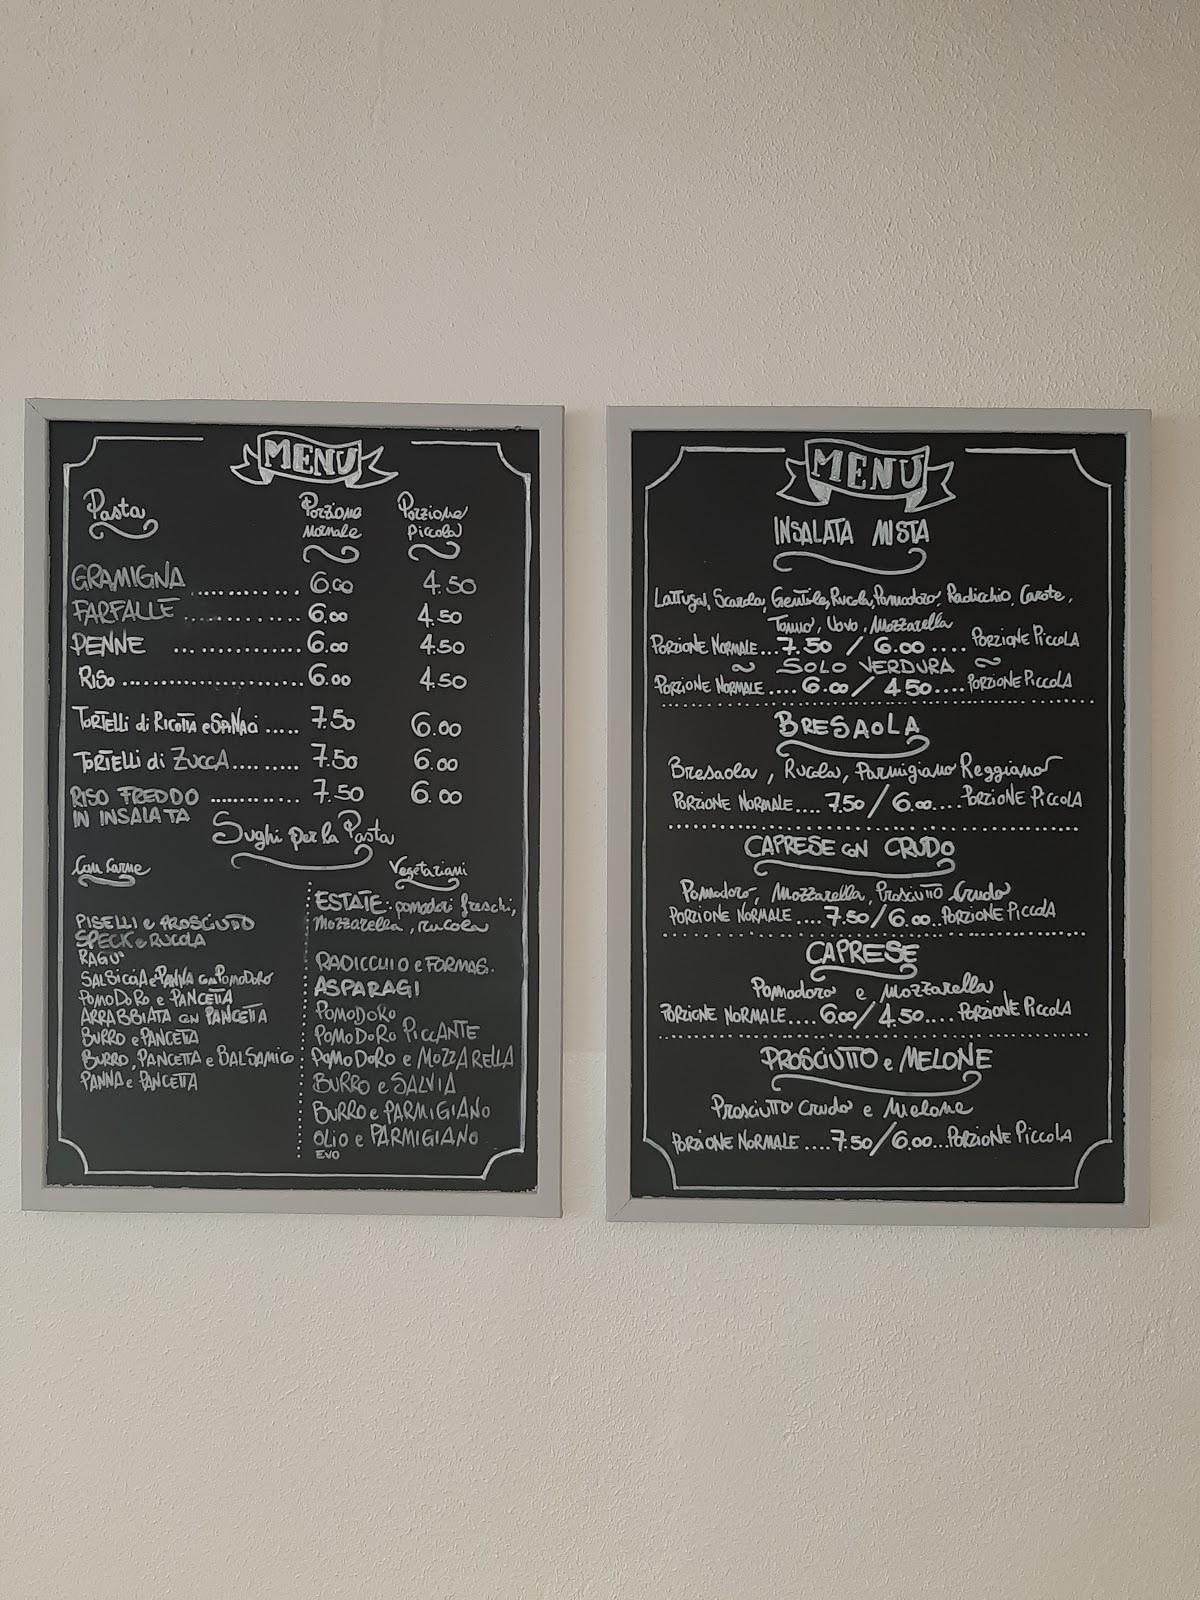 MENÙ
Pasta Porzione Normale Porzione Piccola
GRAMIGNA ............ 6.00 4.50
FARFALLE ............. 6.00 4.50
PENNE .............. 6.00 4.50
RISO ...................... 6.00 4.50
TORTELLI di RICOTTA e SPINACI ..... 7.50 6.00
TORTELLI di ZUCCA.......... 7.50 6.00
RISO FREDDO ............. 7.50 6.00
IN INSALATA
Sughi per la Pasta
Con Carne
PISELLI e PROSCIUTTO
SPECK e RUCOLA
RAGU'
SALSICCIA e PANNA con POMODORO
POMODORO e PANCETTA
ARRABBIATA con PANCETTA
BURRO e PANCETTA
BURRO, PANCETTA e BALSAMICO
PANNA e PANCETTA
Vegetariani
ESTATE: pomodori freschi,
mozzarella, rucola
RADICCHIO e FORMAG.
ASPARAGI
POMODORO
POMODORO PICCANTE
POMODORO e MOZZARELLA
BURRO e SALVIA
BURRO e PARMIGIANO
OLIO e PARMIGIANO
EVO
MENÙ
INSALATA MISTA
Lattuga, Scarola, Gentile, Rucola, Pomodoro, Radicchio, Carote,
Tonno, Uovo, Mozzarella
PORZIONE NORMALE...7.50 / 6.00 .... PORZIONE PICCOLA
~ SOLO VERDURA ~
PORZIONE NORMALE.... 6.00 / 4.50 .... PORZIONE PICCOLA
BRESAOLA
Bresaola, Rucola, Parmigiano Reggiano
PORZIONE NORMALE.... 7.50 / 6.00....PORZIONE PICCOLA
CAPRESE con CRUDO
Pomodoro, Mozzarella, Prosciutto Crudo
PORZIONE NORMALE.... 7.50 / 6.00. PORZIONE PICCOLA
CAPRESE
Pomodoro e mozzarella
PORZIONE NORMALE.... 6.00 / 4.50.... PORZIONE PICCOLA
PROSCIUTTO e MELONE
Prosciutto Crudo e Melone
PORZIONE NORMALE ....7.50 / 6.00...PORZIONE PICCOLA